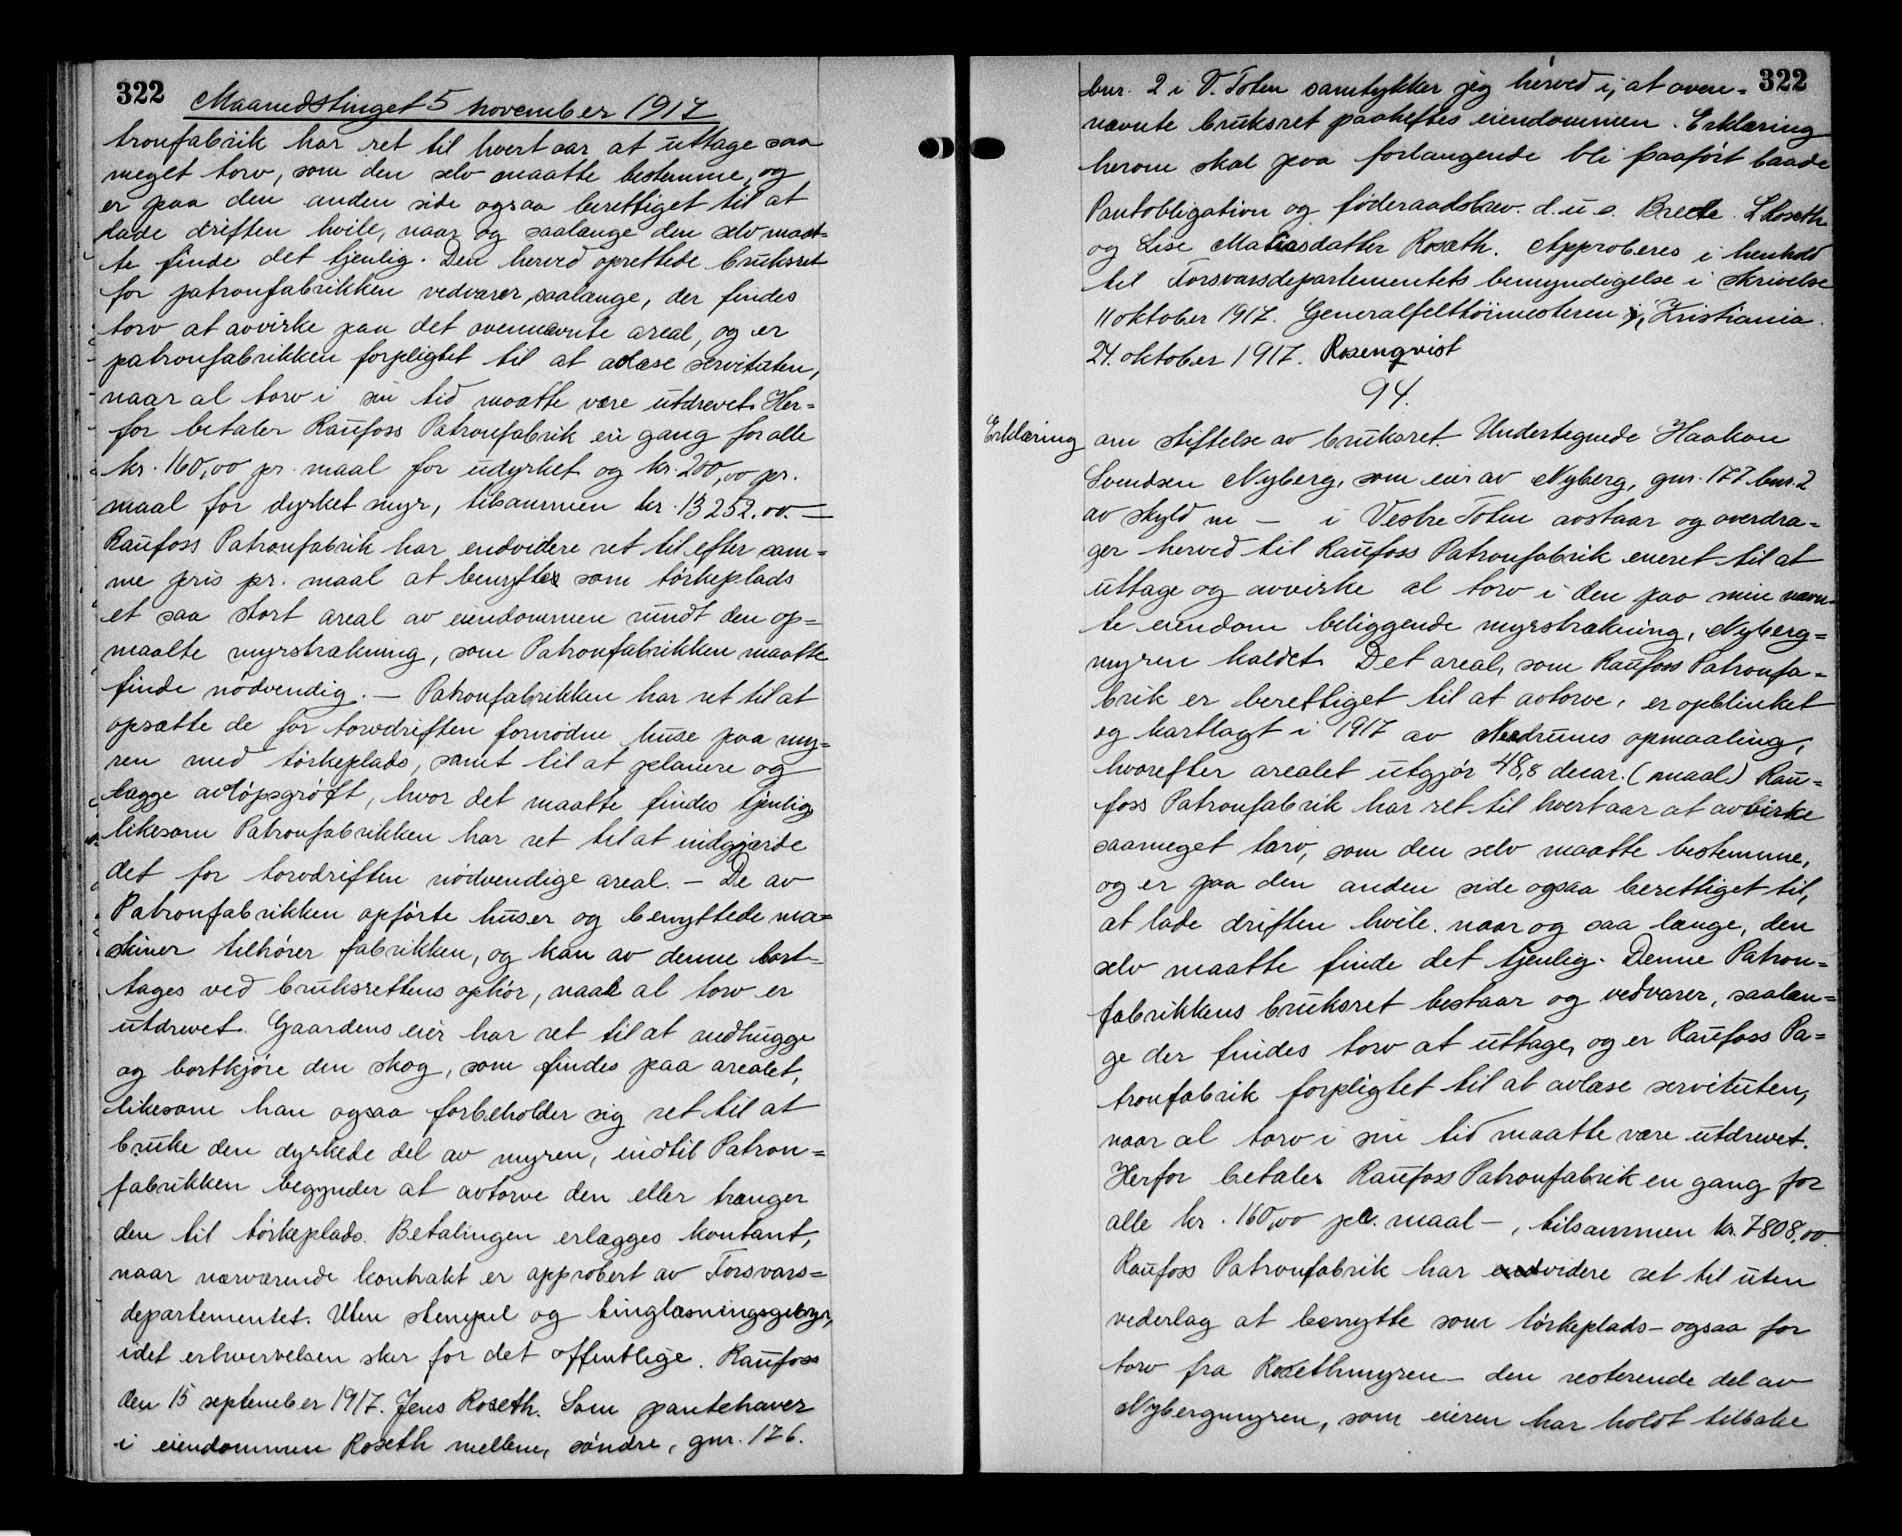 322
Maanedstinget 5 november 1917
tronfabrik har ret til hvert aar at uttage saa
meget torv, som den selv maatte bestemme, og
er paa den anden side ogsaa berettiget til at
lade driften hvile, naar og saalange den selv maat-
te finde det tjenlig. Den herved oprettede bruksret
for patronfabrikken vedvarer saalænge, der findes
torv at avvirke paa det ovennævnte areal, og er
patronfabrikken forpligtet til at avlæse servituten,
naar al torv i sin tid maatte være utdrevet. Her=
for betaler Raufoss Patronfabrik en gang for alle
kr. 160,00 pr. maal for udyrket og kr. 200,00 pr.
maal for dyrket myr, tilsammen kr. 13252.00. —
Raufoss Patronfabrik har endvidere ret til efter sam=
me pris pr. maal at benytte som tørkeplads
et saa stort areal av eiendommen rundt den op=
maalte myrstrækning, som Patronfabrikken maatte
finde nödvendig. — Patronfabrikken har ret til at
opsætte de for torvdriften fornödne huse paa my=
ren med törkeplads, samt til at planere og
lægge avlöpsgröft, hvor det maatte findes tjenlig
likesom Patronfabrikken har ret til at indgjærde
det for torvdriften nödvendige areal. — De av
Patronfabrikken opförte huser og benyttede ma=
skiner tilhörer fabrikken, og kan av denne bort-
tages ved bruksrettens ophör, naar al torv er
utdrevet. Gaardens eier har ret til at nedhugge
og bortkjöre den skog, som findes paa arealet,
likesom han ogsaa forbeholder sig ret til at
bruke den dyrkede del av myren, indtil Patron=
fabrikken begynder at avtorve den eller trænger
den til törkeplads. Betalingen erlægges kontant,
naar nærværende kontrakt er approbert av Forsvars=
departementet. Uten stempel og tinglæsningsgebyr,
idet erhvervelsen sker for det offentlige. Raufoss
den 15 september 1917. Jens Roseth. Som pantehaver
i eiendommen Roseth mellem, söndre, gnr. 176.
322
bnr. 2 i V. Toten samtykker jeg herved i, at oven=
nævnte bruksret paaheftes eiendommen. Erklæring
herom skal paa forlangende bli paaført baade
Pantobligation og föderaadskav. d.u.s. Brede L Roseth
og Lise Matiasdatter Roseth. Approberes i henhold
til Forsvarsdepartementets bemyndigelse i skrivelse
11 oktober 1917. Generalfelttöimesteren i, Kristiania.
24. oktober 1917. Rosenqvist
94.
Erklæring om stiftelse av bruksret. Undertegnede Haakon
Svendsen Nyberg, som eier av Nyberg, gnr. 177 bnr. 2
av skyld m — i Vestre Toten avstaar og overdra=
ger herved til Raufoss Patronfabrik eneret til at
uttage og avvirke al torv i den paa min nævn=
te eiendom beliggende myrstrækning, Nyberg=
myren kaldet. Det areal, som Raufoss Patronfa=
brik er berettiget til at avtorve, er opblinket
og kartlagt i 1917 av Nedrums opmaaling,
hvorefter arealet utgjör 48,8 decar. (maal) Rau=
foss Patronfabrik har ret til hvert aar at avvirke
saameget torv, som den selv maatte bestemme,
og er paa den anden side ogsaa berettiget til,
at lade driften hvile. naar og saa længe, den
selv maatte finde det tjenlig. Denne Patron=
fabrikkens bruksret bestaar og vedvarer, saalæn=
ge der findes torv at uttage, og er Raufoss Pa=
tronfabrik forpligtet til at avlæse servituten,
naar al torv i sin tid maatte være utdrevet.
Herfor betaler Raufoss Patronfabrik en gang for
alle kr. 160,00 pr. maal —, tilsammen kr. 7808,00.
Raufoss Patronfabrik har endvidere ret til uten
vederlag at benytte som törkeplads — ogsaa for
torv fra Rosethmyren — den resterende del av
Nybergmyren, som eieren har holdt tilbake